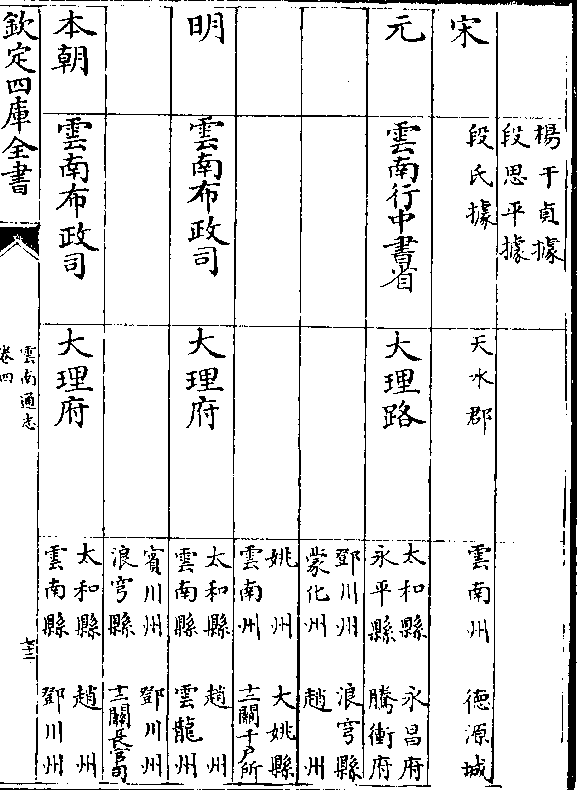 楊干貞據
段思平據
宋
段氏據
天水郡
雲南州 德源城
元
雲南行中書省
大理路
太和縣 永昌府
永平縣 騰衝府
鄧川州 浪穹縣
蒙化州 趙州
姚州 大姚縣
雲南州 十二關千戶所
明
雲南布政司
大理府
太和縣 趙州
雲南縣 雲龍州
賓川州 鄧川州
浪穹縣 十二關長官司
本朝
雲南布政司
大理府
太和縣 趙州
雲南縣 鄧川州
欽定四庫全書
雲南通志
卷四